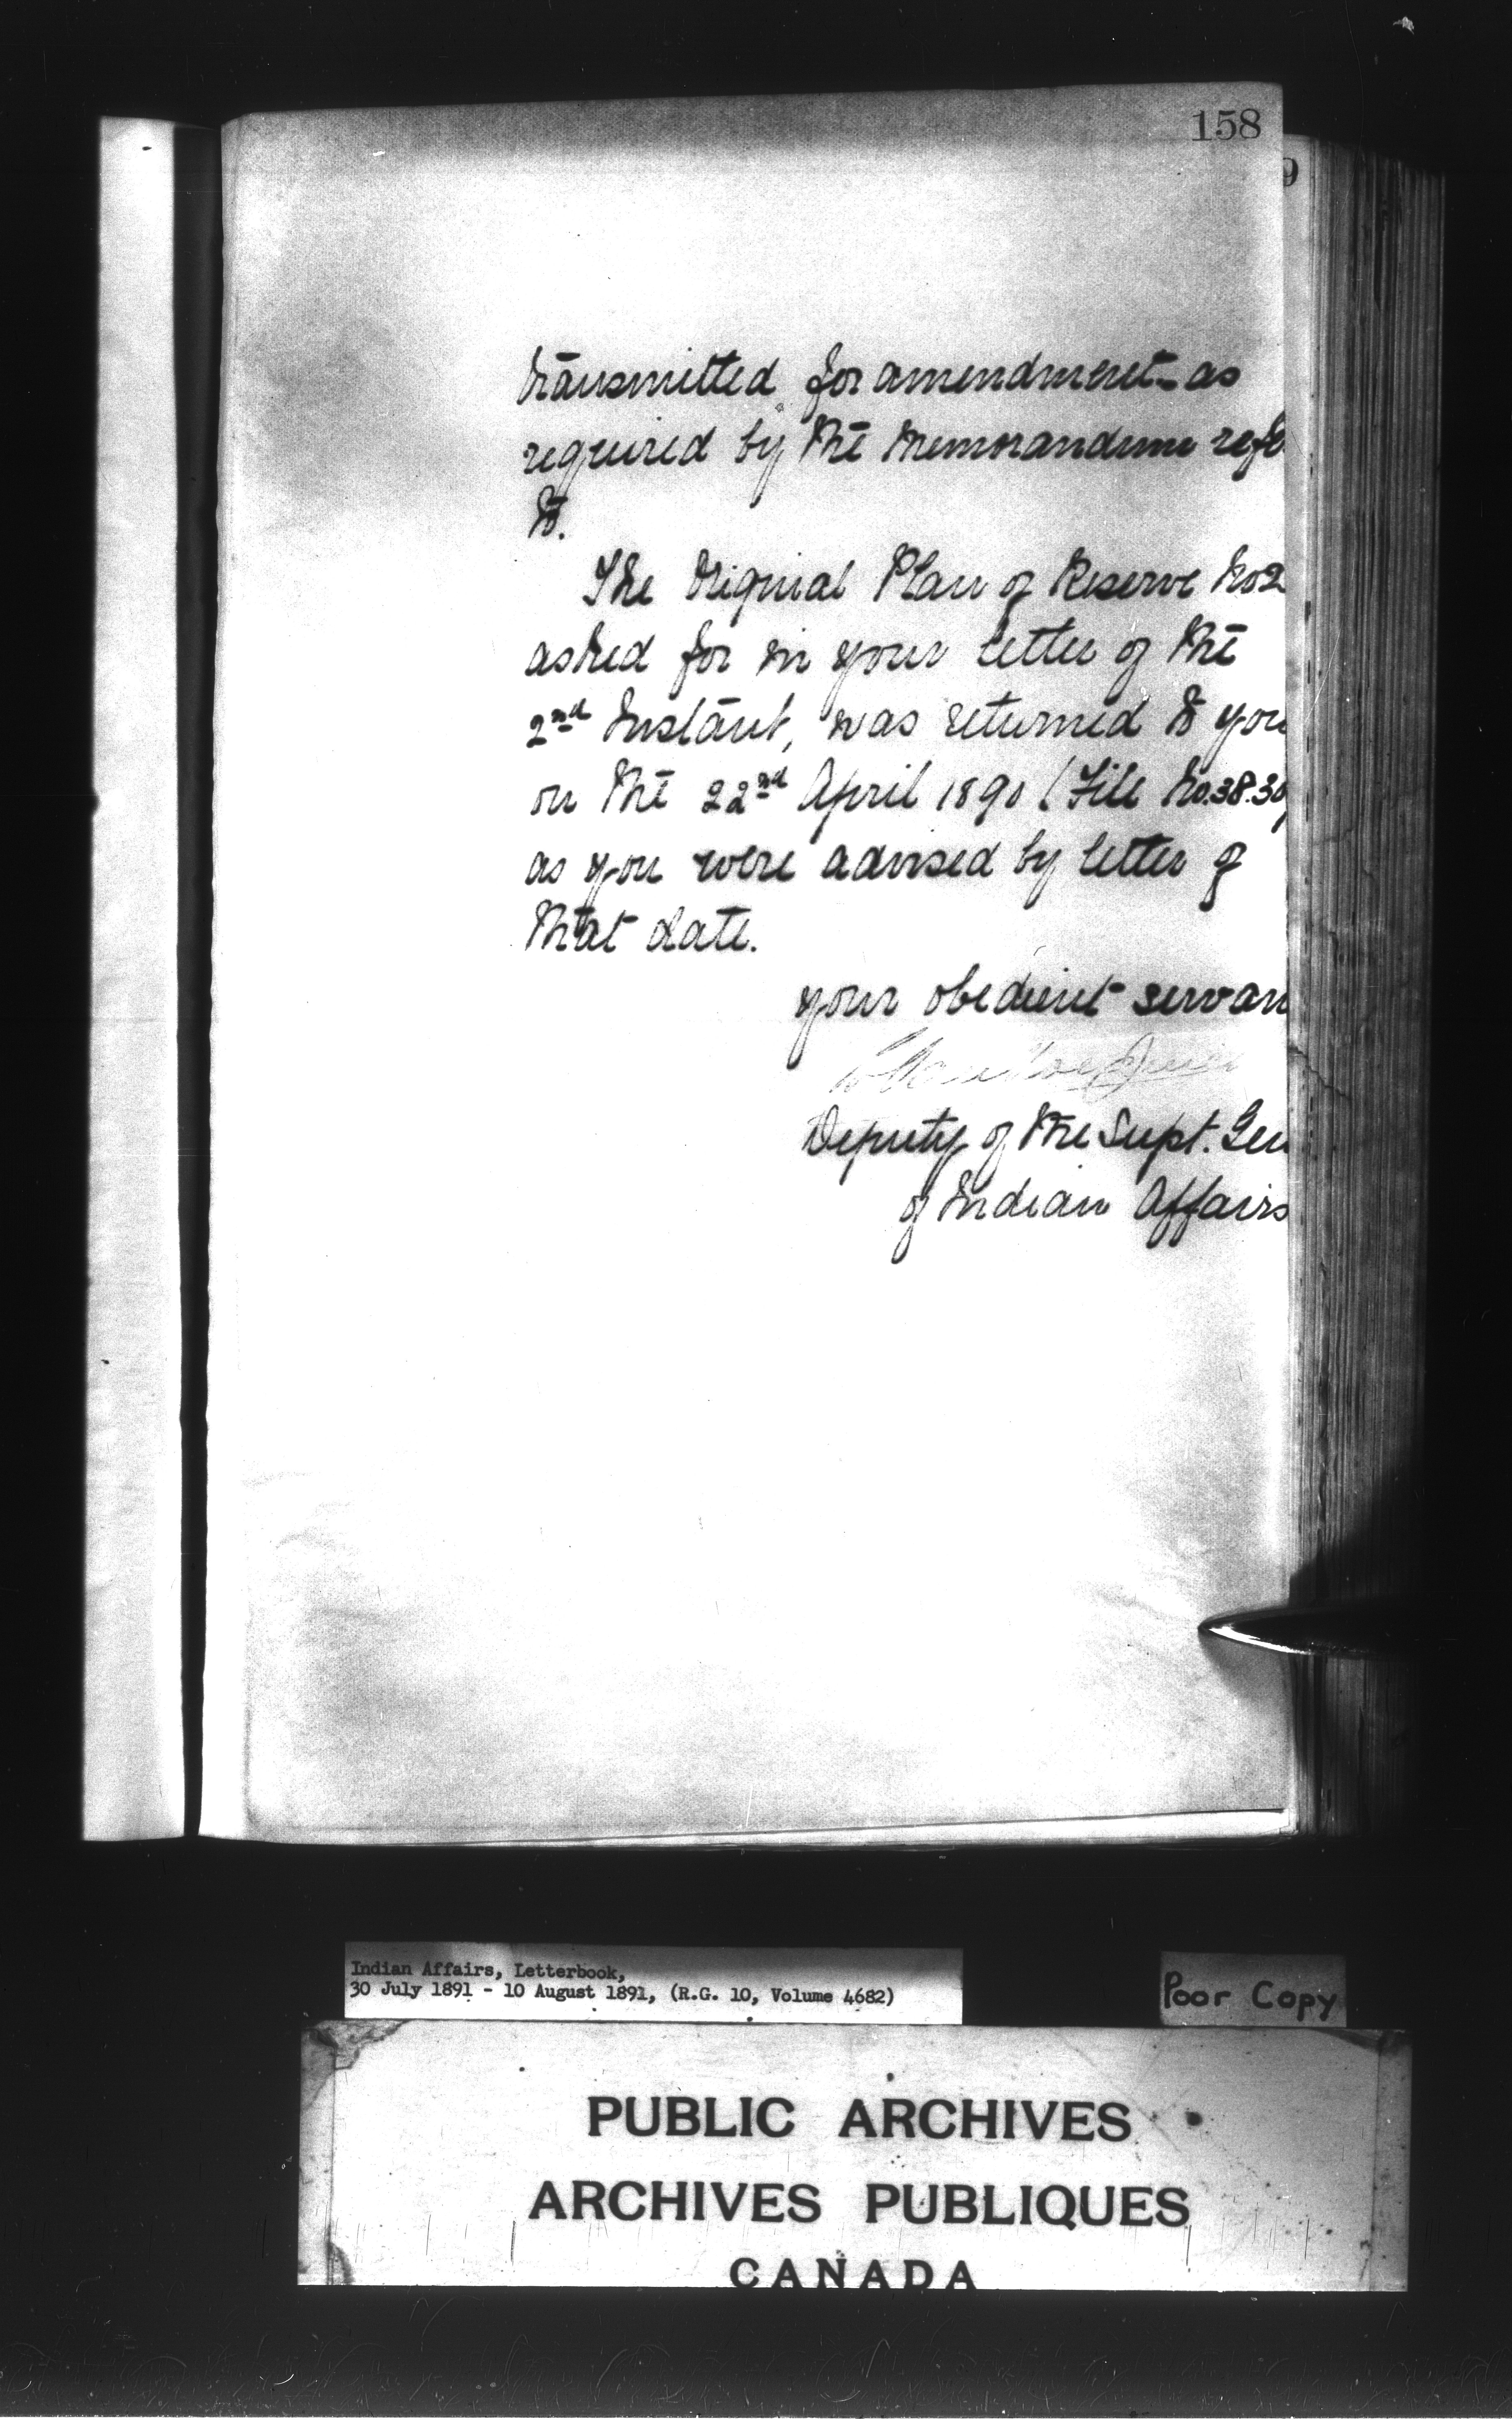 158
9
transmitted for amendment as
required by the memorandum refe
to.
The Original Plan of Reserve No 2
asked for in your letter of the
2nd Instant, was returned to you
on the 22nd April 1890 (File No. 38.30
as you were advised by letter of
that date.
your obedient servan
Deputy of the Supt. Gen
of Indian Affairs
Indian Affairs, Letterbook,
30 July 1891 - 10 August 1891, (R.G. 10, Volume 4682)
Poor Copy
PUBLIC ARCHIVES
ARCHIVES PUBLIQUES
CANADA